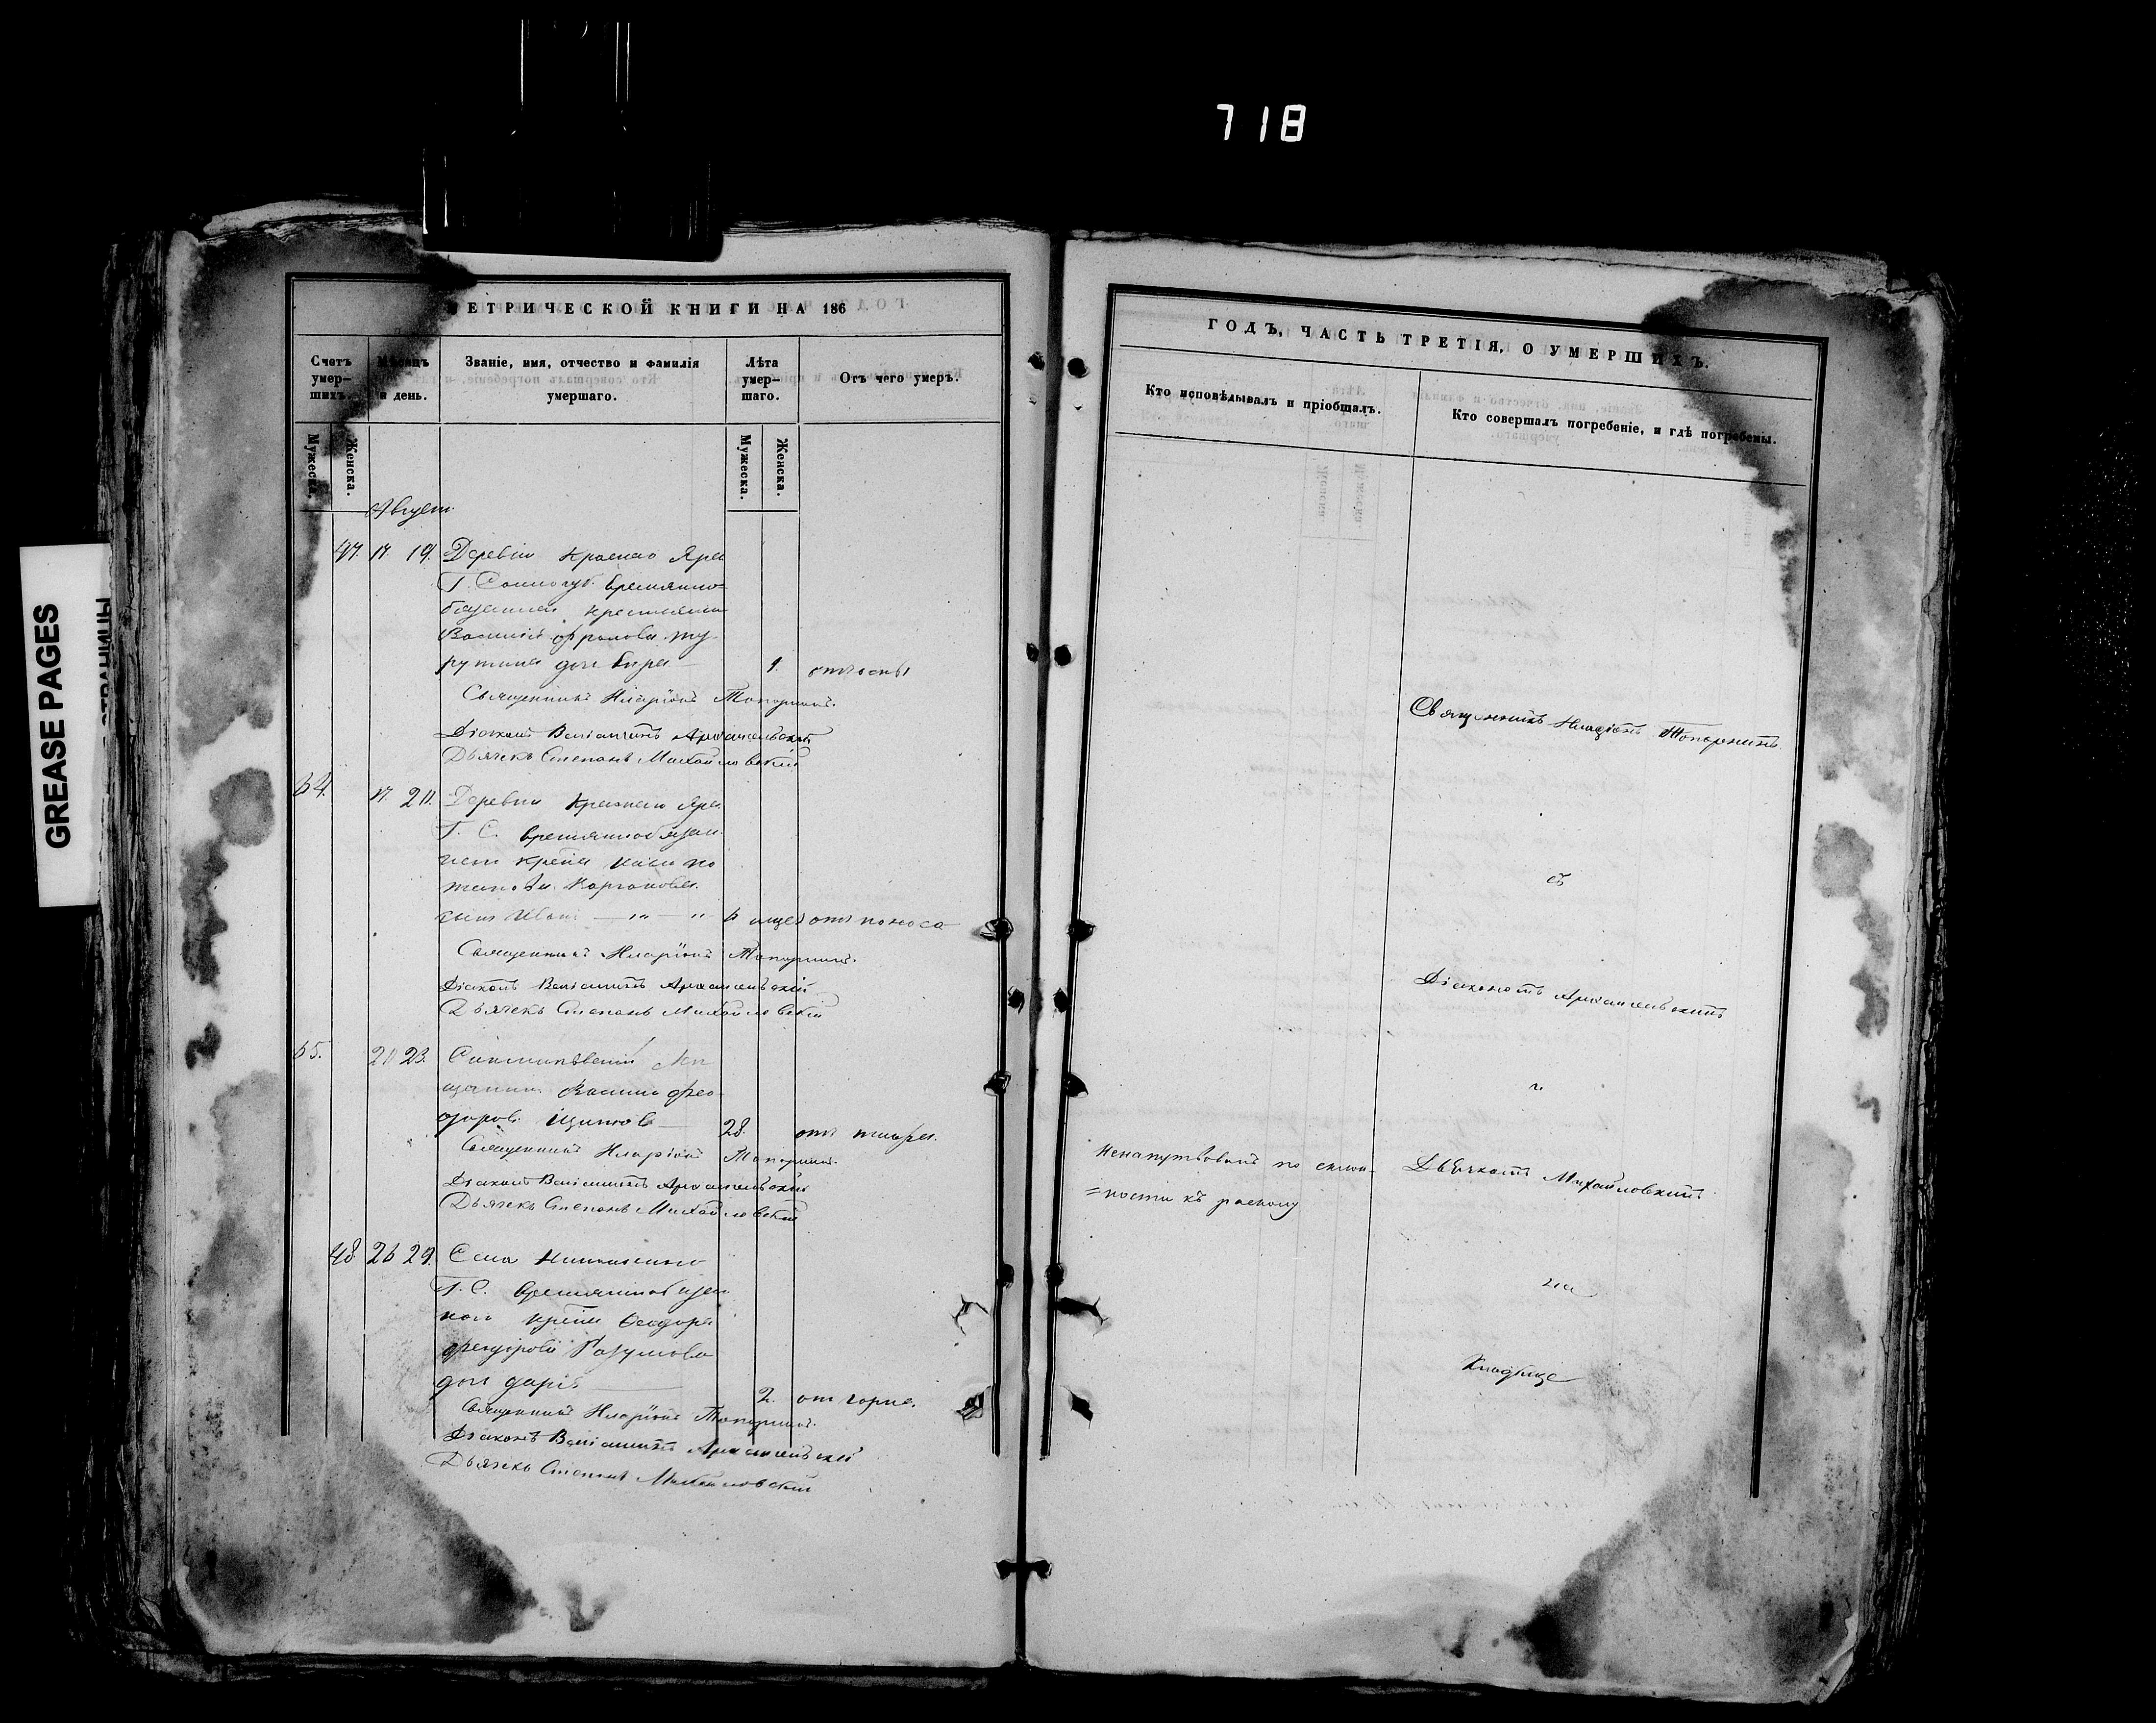 718
GREASE PAGES
СТРАНИЦЫ
МЕТРИЧЕСКОЙ КНИГИ НА 186
Счетъ умер-шихъ.
Мѣсяцъ и день.
Званіе, имя, отчество и фамилія умершаго.
Лѣта умер-шаго.
Отъ чего умеръ.
Мужеска.
Женска.
Мужеска.
Женска.
Август.
47. 17. 19. Деревни Краснаго Яра
Г. Соллогуб. временно-
обязаннаго крестьянина
Василія Фролова
дочь 1. от оспы
Священникъ Иларіонъ Топорнинъ.
Діаконъ Веніаминъ Архангельскій
Дьячекъ Степанъ Михайловскій
64. 17. 20. Деревни Краснаго Яра
Г. С. временнообязан
наго крест.
сынъ Иванъ — " — " 6 мцев от поноса
Священникъ Иларіонъ Топорнинъ.
Діаконъ Веніаминъ Архангельскій
Дьячекъ Степанъ Михайловскій
65. 21 23.
щанин Василій Фео-
доров. 28. от жара.
Священникъ Иларіонъ Топорнинъ.
Діаконъ Веніаминъ Архангельскій
Дьячекъ Степанъ Михайловскій
48 26 29. Села
Г. С. временнообязан
наго крест. Феодора
Разумова
дочь Дарія 2. от горла.
Священникъ Иларіонъ Топорнинъ.
Діаконъ Веніаминъ Архангельскій
Дьячекъ Степанъ Михайловскій
ГОДЪ, ЧАСТЬ ТРЕТІЯ, О УМЕРШИХЪ.
Кто исповѣдывалъ и пріобщалъ.
Кто совершалъ погребеніе, и гдѣ погребены.
Священникъ Иларіонъ Топорнинъ
съ
Діакономъ Архангельскимъ
и
Ненапутствованъ по склон-
=ности къ расколу
Дьячкомъ Михайловскимъ
на
Кладбище